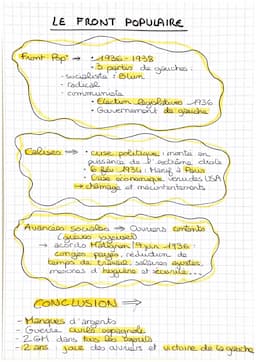 LE FRONT POPULAIRE
Front Pop' → • 1936 - 1938
• 3 partis de gauches :
- socialiste : Blum
- radical
- communiste
• Election législative 1936
• Gouvernement de gauche
Causes → • crise politique : montée en
puissance de l'extrême droite
• 6 fév 1934 : Manif à Paris
• Crise économique venu des USA
→ chômage et mécontentements
Avancées sociales → Ouvriers contents
→ accords Matignon 1936 :
congés payés, réduction de
temps de travail, salaires
mesures d'hygiène et sécurité...
CONCLUSION ⇒
- Manques d'argents
- Guerre civile espagnole
- 2GM dans tous les esprits
- 2 ans : joie des ouvriers et victoire de la gauche